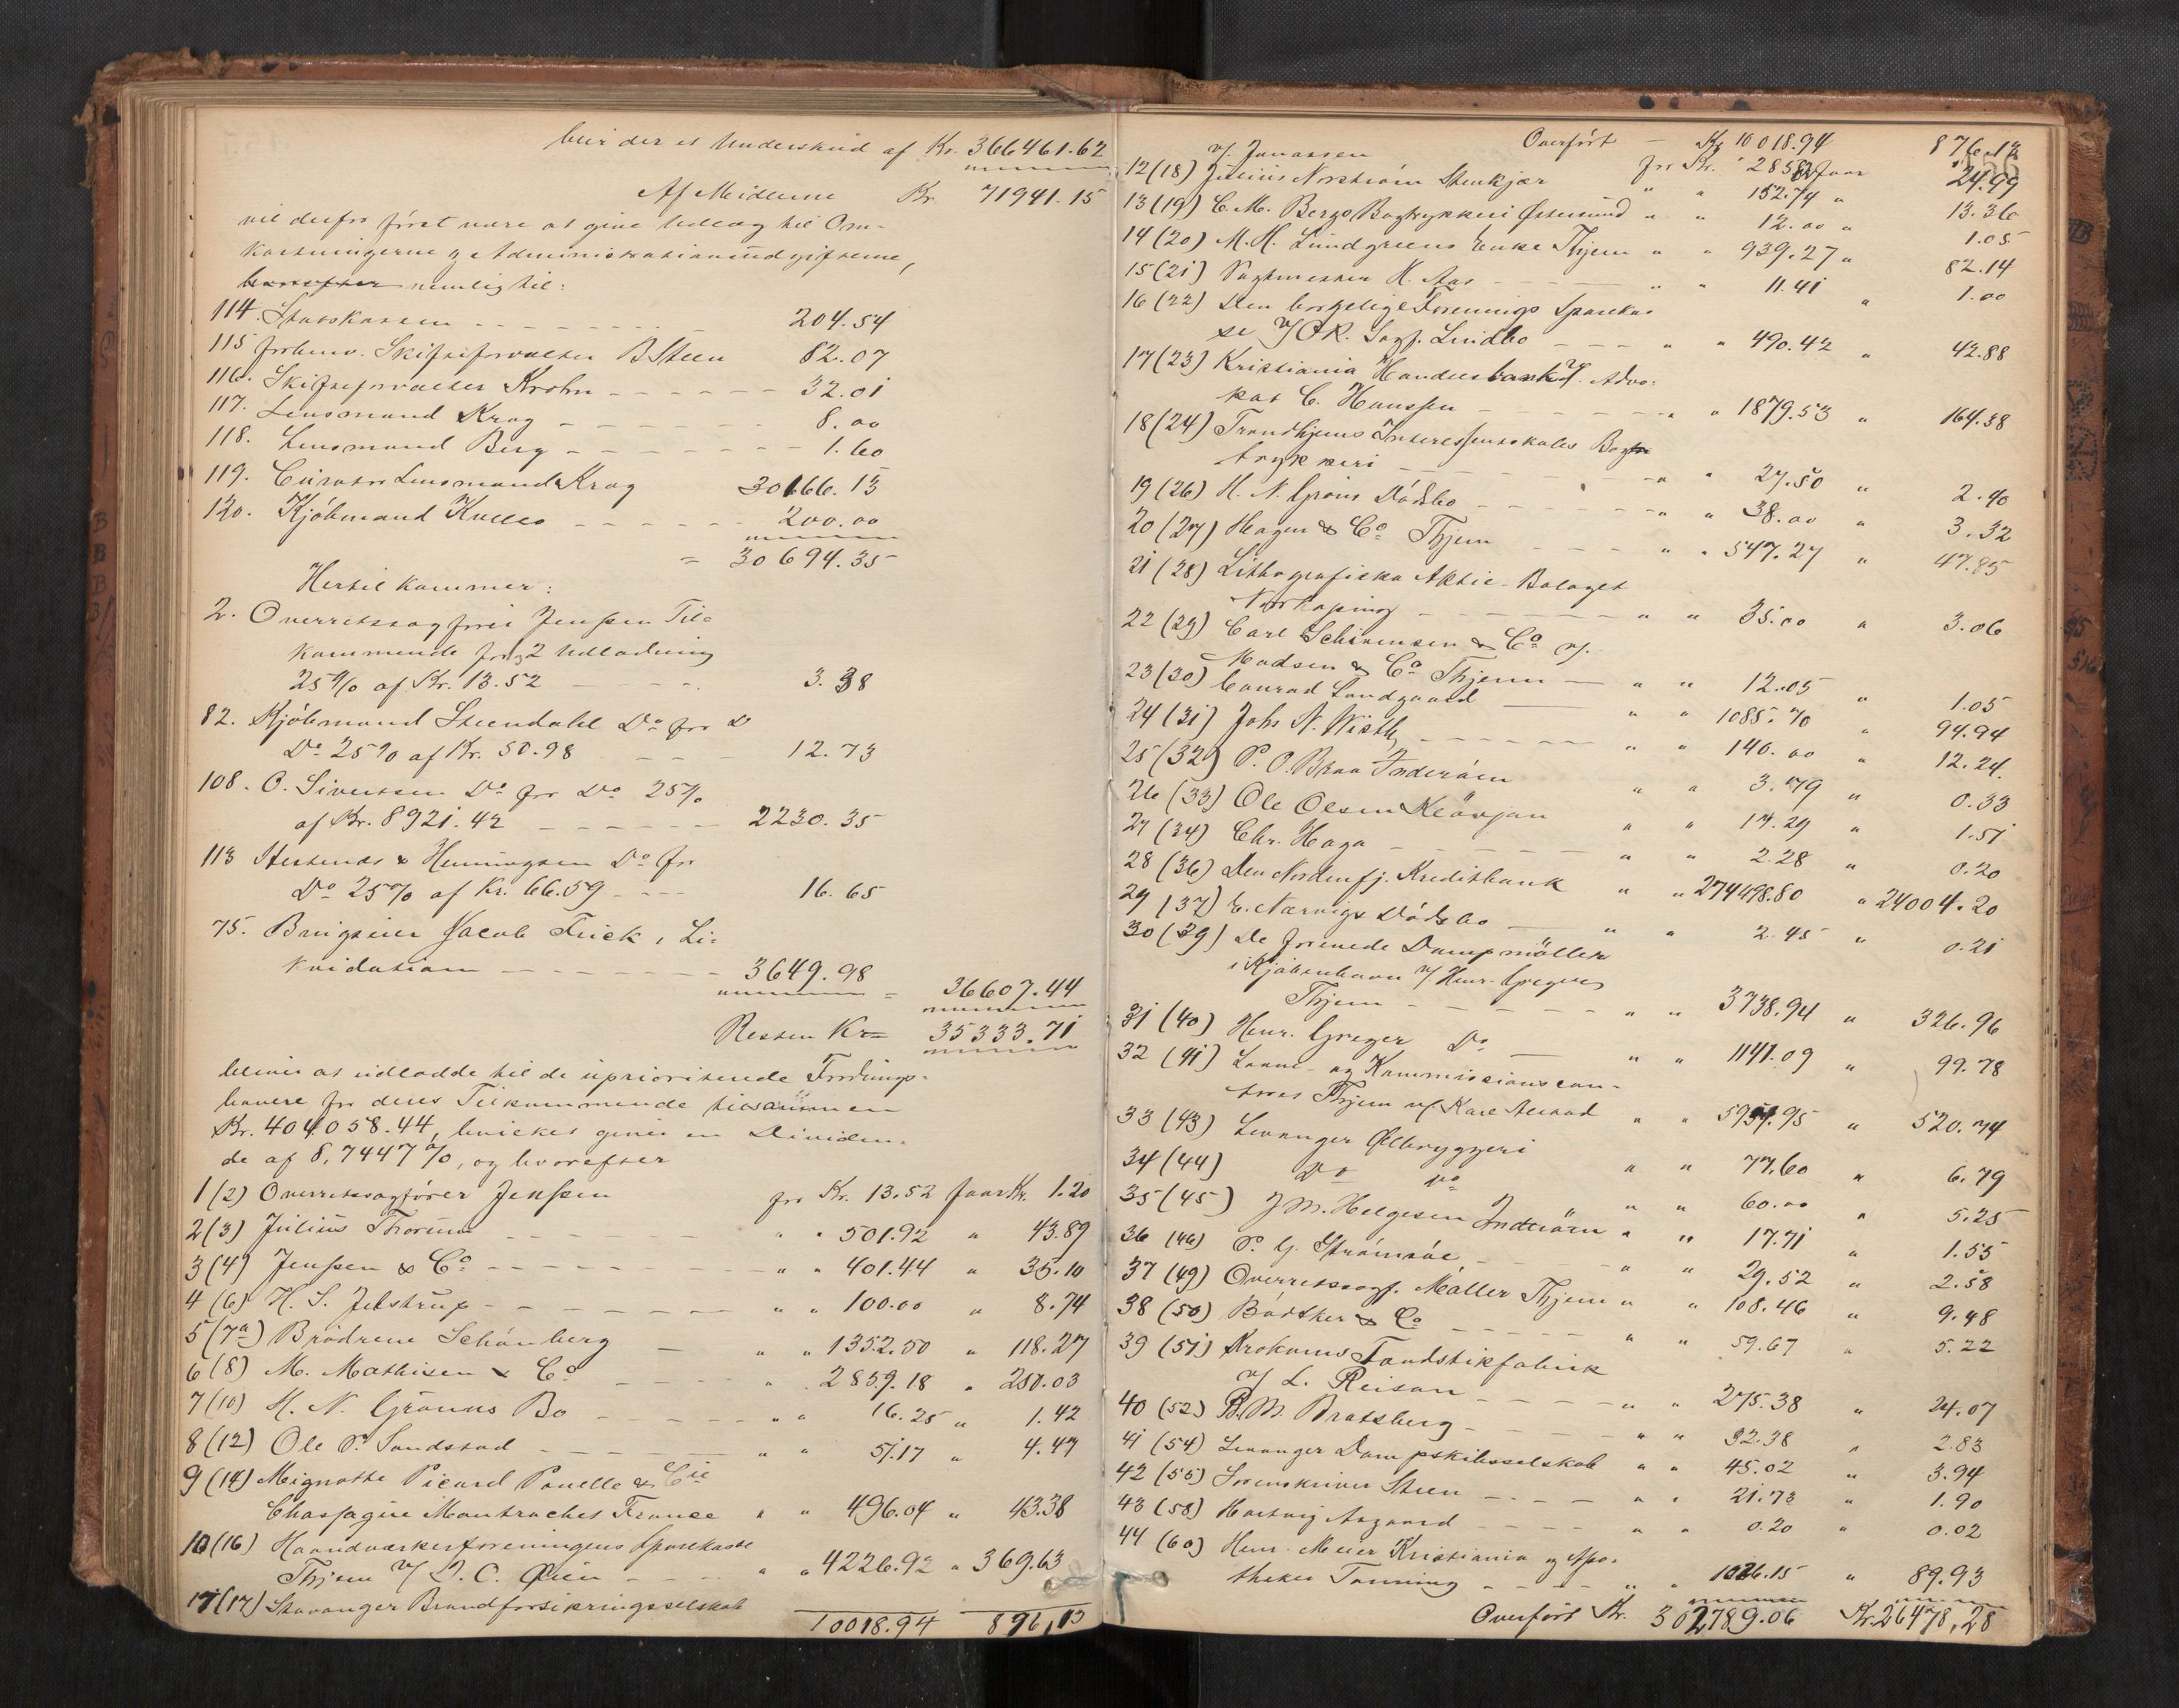 bliver der et Underskud af Kr. 366461.62
Af Midlerne Kr. 71941.15
vil derfor først være at give Udlæg til Om-
kostningerne og Administrationsudgifterne,
nemlig til:
114. Statskassen 204.54
115 forhenv. Skifteforvalter B Steen 82.07
116. Skifteforvalter Krohn 32.01
117. Lensmand Krag 8.00
118. Lensmand Berg 1.60
119. Curator Lensmand Krag 30166.13
120. Kjøbmand 200.00
= 30694.35
Hertil kommer:
2. Overretssagfører Jenssen Til-
kommende for 2 Udlodning
25% af Kr. 13.52 3.38
82. Kjøbmand Steendahl Do for
Do 25% af Kr. 50.98 12.73
108. O. Sivertsen Do for Do 25%
af Kr. 8921.42 2230.35
113 & Henningsen Do for
Do 25% af Kr. 66.59 16.65
75. Brugseier Jacob Trick, Li-
kvidation 3649.98 = 36607.44
Resten Kr = 35333.71
bliver at udlodde til de uprioriterede Fordrings-
havere for deres Tilkommende tilsammen
Kr. 404058.44, hvilket giver en Dividen-
de af 8,7447%, og hvorefter
1(2) Overretssagfører Jenssen for Kr. 13.52 faar Kr. 1.20
2(3) Julius Thorum " " 501.92 " 43.89
3(4) Jenssen & Co " " 401.44 " 35.10
4(6) H. S. Jelstrup " " 100.00 " 8.74
5(7a) Brødrene Schønberg " " 1352.50 " 118.27
6(8) M. Mathisen & Co " " 2859.18 " 250.03
7(10) H. N. Grønns Bo " " 16.25 " 1.42
8(12) Ole P. Sandstad " " 51.17 " 4.47
9(14) Mignotte Picard Ponelle & Cie
Chassagne Montrachet France " " 496.04 " 43.38
10(16) Haandværkerforeningens Sparekasse
Thjem v/ D. C. Øien " " 4226.92 " 369.63
11(17) Stavanger Brandforsikringsselskab
10018.94 876,13
Overført Kr 10018.94 876.13
v/ Jonassen for Kr. 285.82 faar 24.99
12(18) Julius Norstrøm Stenkjær " " 152.74 " 13.36
13(19) C. M. Bergs Bogtrykkeri Østersund " " 12.00 " 1.05
14(20) M. H. Lundgreens Enke Thjem " " 939.27 " 82.14
15(21) K. Aas " " 11.41 " 1.00
16(22) Den borgelige Forenings Sparekas-
se v/ O.R. Sagf. Lindbo " " 490.42 " 42.88
17(23) Kristiania Handelsbank v/ Advo-
kat C. Hanssen " " 1879.53 " 164.38
18(24) Trondhjems Interessentskabs Bog-
trykkeri " " 27.50 " 2.40
19(26) H. N. Grøns Dødsbo " " 38.00 " 3.32
20(27) Hagen & Co Thjem " " 547.27 " 47.85
21(28) Lithografiska Aktie-Bolaget
Norkøping " " 35.00 " 3.06
22(29) Carl Schivensen & Co v/
Madsen & Co Thjem " " 12.05 " 1.05
23(30) Conrad Landgaard " " 1085.70 " 94.94
24(31) Johs N. Wisth " " 140.00 " 12.24.
25(32) P. O. Braa Inderøen " " 3.79 " 0.33
26(33) Ole Olsen Kløvjan " " 17.29 " 1.51
27(34) Chr. Haga " " 2.28 " 0.20
28(36) Den Nordenfj. Kreditbank " " 274498.80 " 24004.20
29(37) E. Nærvigs Dødsbo " " 2.45 " 0.21
30(39) De forenede Dampmøller
i Kjøbenhavn v/ Henr. Greger
Thjem " " 3738.94 " 326.96
31(40) Henr. Greger Do " " 1141.09 " 99.78
32(41) Laane- og Kommissionscon-
tores Thjem v/ Karl Aestad " " 5954.95 " 520.74
33(43) Levanger Ølbryggeri " " 77.60 " 6.79
34(44) Do Do " " 60.00 " 5.25
35(45) J M. Helgesen Inderøen " " 17.71 " 1.55
36(46) P. G. Strømsøe " " 29.52 " 2.58
37(49) Overretssagf. Møller Thjem " " 108.46 " 9.48
38(50) Bødtker & Co " " 59.67 " 5.22
39(51) Krokoms Tændstikfabrik
v/ L. Reisan " " 275.38 " 24.07
40(52) B. M. Bratsberg " " 32.38 " 2.83
41(54) Levanger Dampskibsselskab " " 45.02 " 3.94
42(55) Sorenskriver Steen " " 21.73 " 1.90
43(58) Hartvig Aagaard " " 0.20 " 0.02
44(60) Henr. Meier Kristiania v/ Apo-
theker Tanning " " 1026.15 " 89.93
Overført Kr. 302789.06 Kr. 26478,28